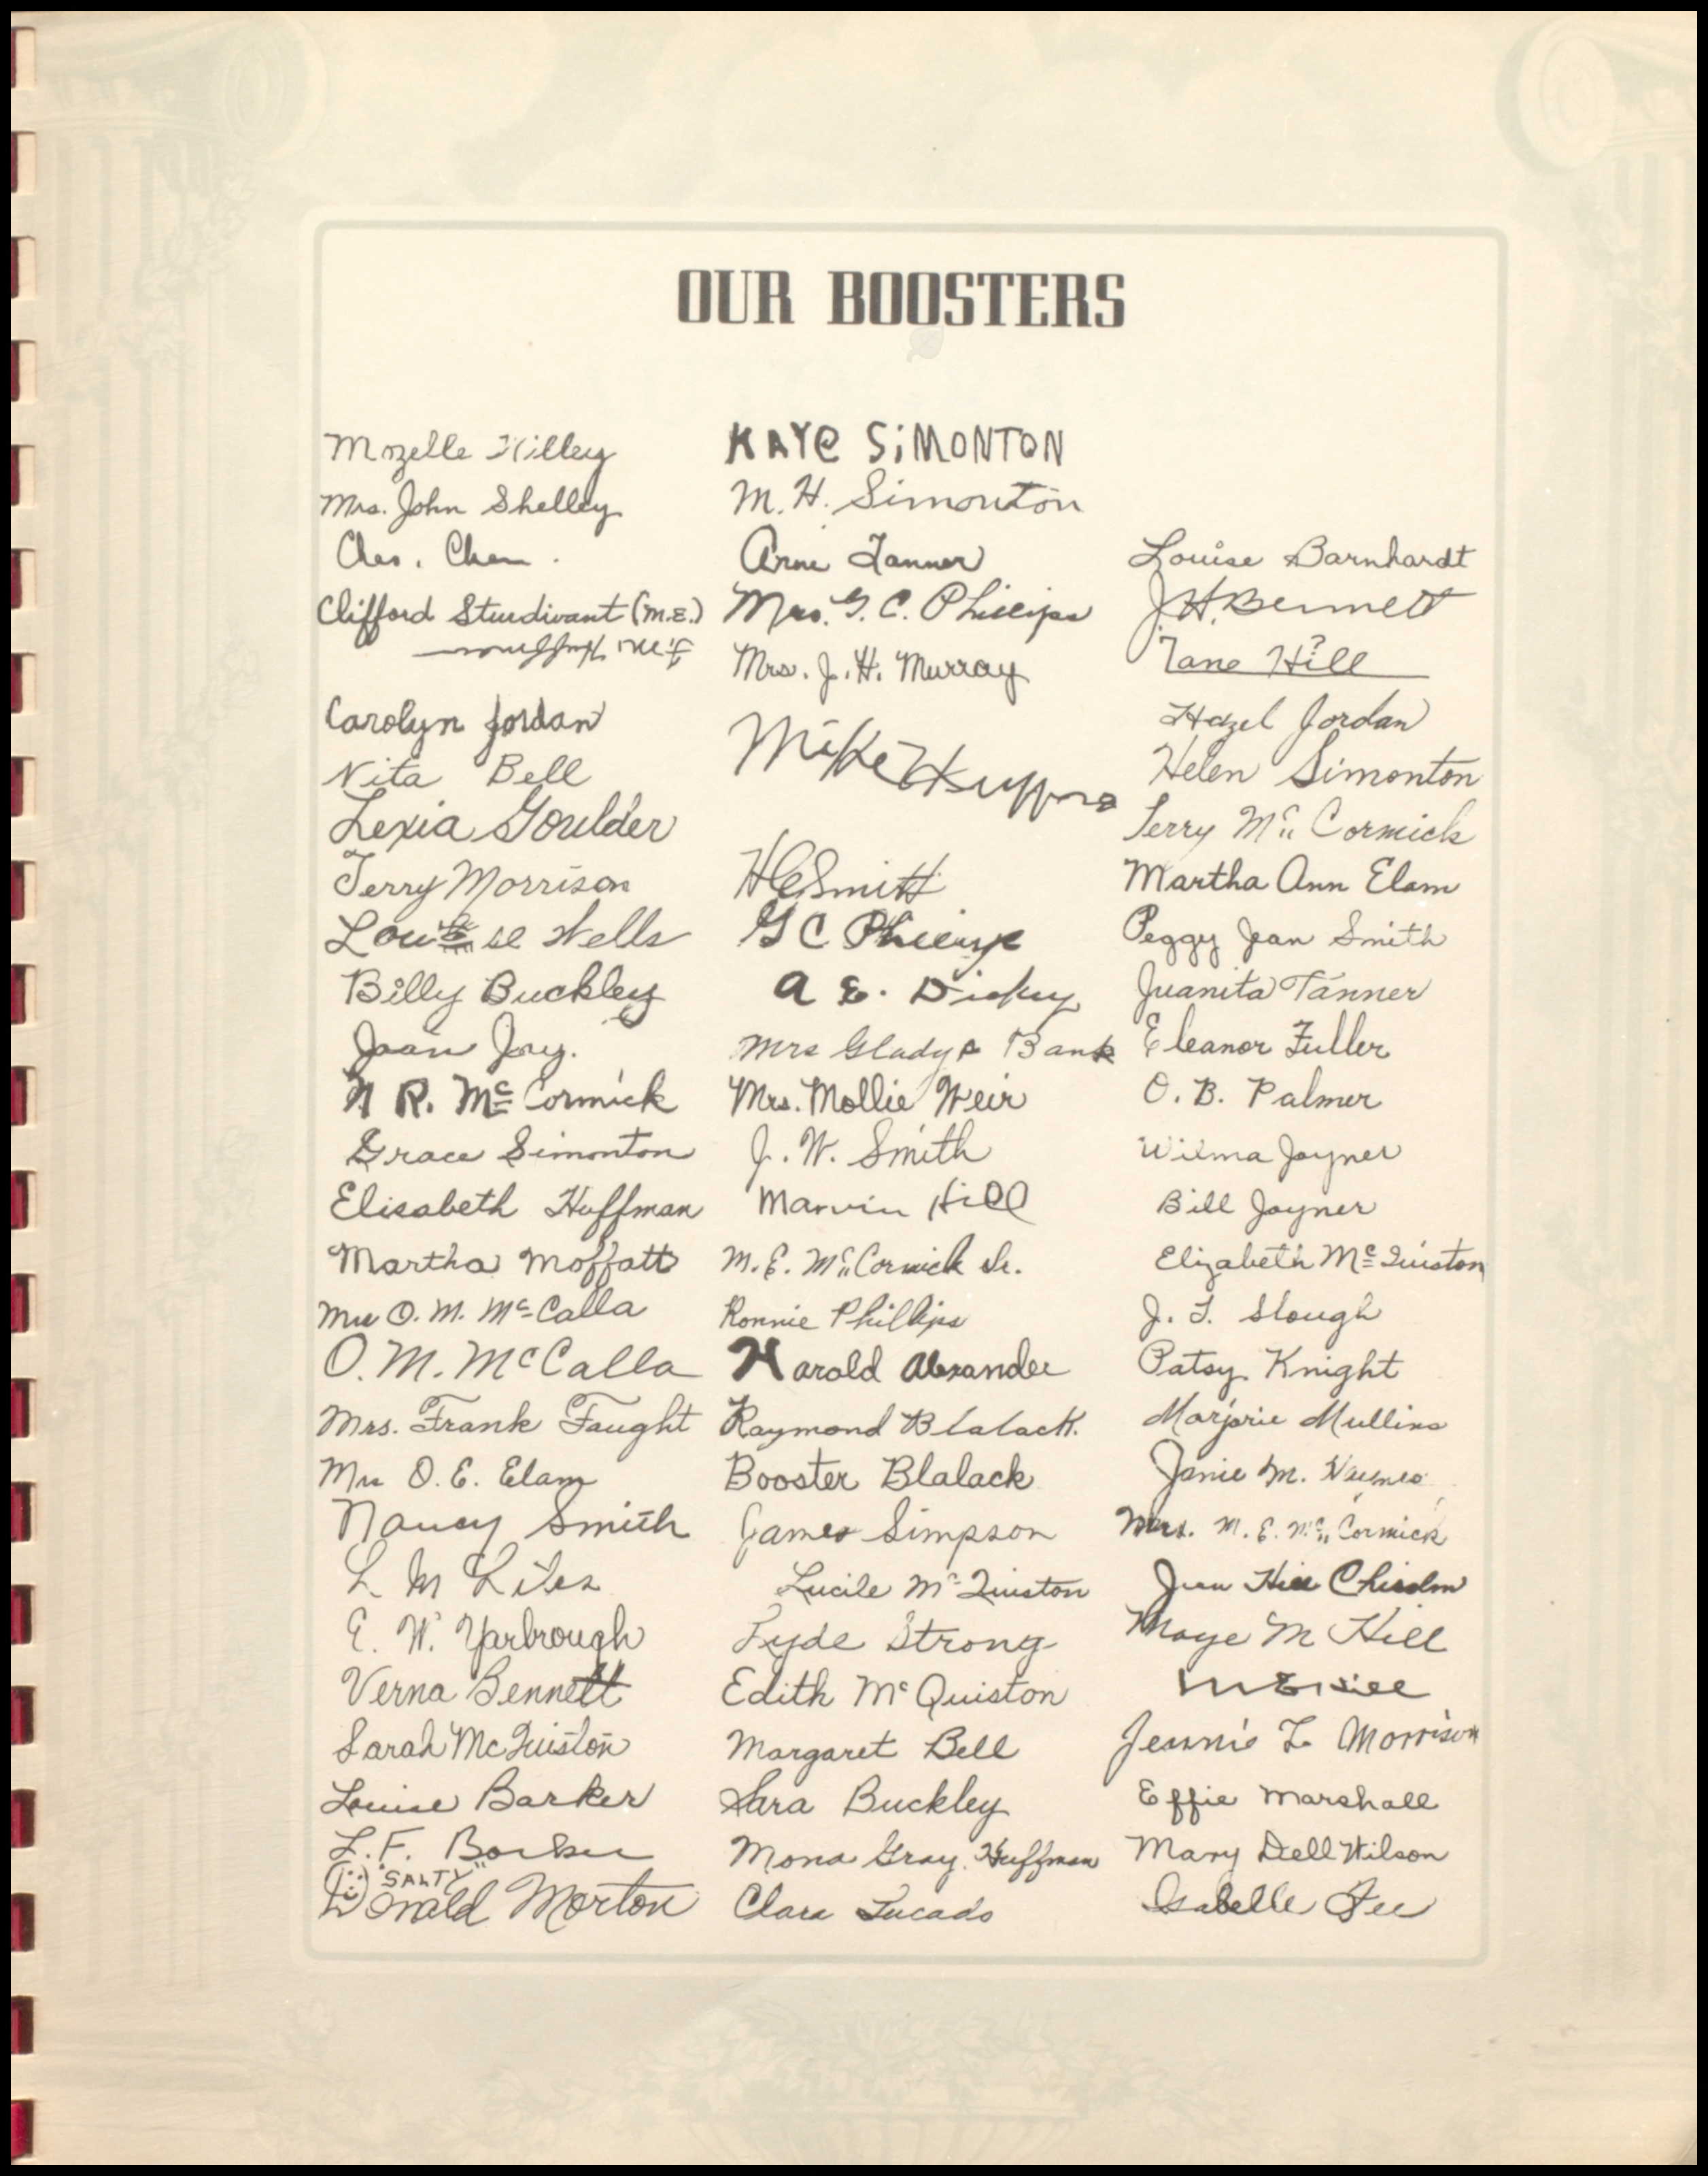 OUR BOOSTERS
Mozelle Hilley
Mrs. John Shelley
Chas.
Clifford Sturdivant (M.E.)
Huffman
Carolyn Jordan
Nita Bell
Lexia Goulder
Jerry Morrison
Louise Wells
Billy Buckley
Joan Joy.
N R. McCormick
Grace Simonton
Elisabeth Huffman
Martha Moffatt
Mrs O. M. McCalla
O. M. McCalla
Mrs. Frank Faught
Mrs O. E. Elam
Nancy Smith
L M Liles
E. W. Yarbrough
Verna Bennett
Sarah McQuiston
Louise Barker
L. F. Barker
"SALTY"
Donald Morton
KAYe SiMONTON
M. H. Simonton
Anne Tanner
Mrs. G. C. Phillips
Mrs. J. H. Murray
Mike Huffman
H C Smith
G C Phillips
A E. Dickey
Mrs Gladys Bank
Mrs. Mollie Weir
J. W. Smith
Marvin Hill
M. E. McCormick Sr.
Ronnie Phillips
Harold Alexander
Raymond Blalack.
Booster Blalack
James Simpson
Lucile McQuiston
Lyde Strong
Edith McQuiston
Margaret Bell
Sara Buckley
Mona Gray Huffman
Clara Lucado
Louise Barnhardt
J. H. Bennett
Jane Hill
Hazel Jordan
Helen Simonton
Jerry McCormick
Martha Ann Elam
Peggy Jean Smith
Juanita Tanner
Eleanor Fuller
O. B. Palmer
Wilma Joyner
Bill Joyner
Elizabeth McQuiston
J. T. Slough
Patsy Knight
Marjorie Mullins
Janie M.
Mrs. M. E. McCormick
Jean Hill Chisolm
Maye M Hill
M E Hill
Jennie L. Morrison
Effie Marshall
Mary Dell Wilson
Isabelle Fee